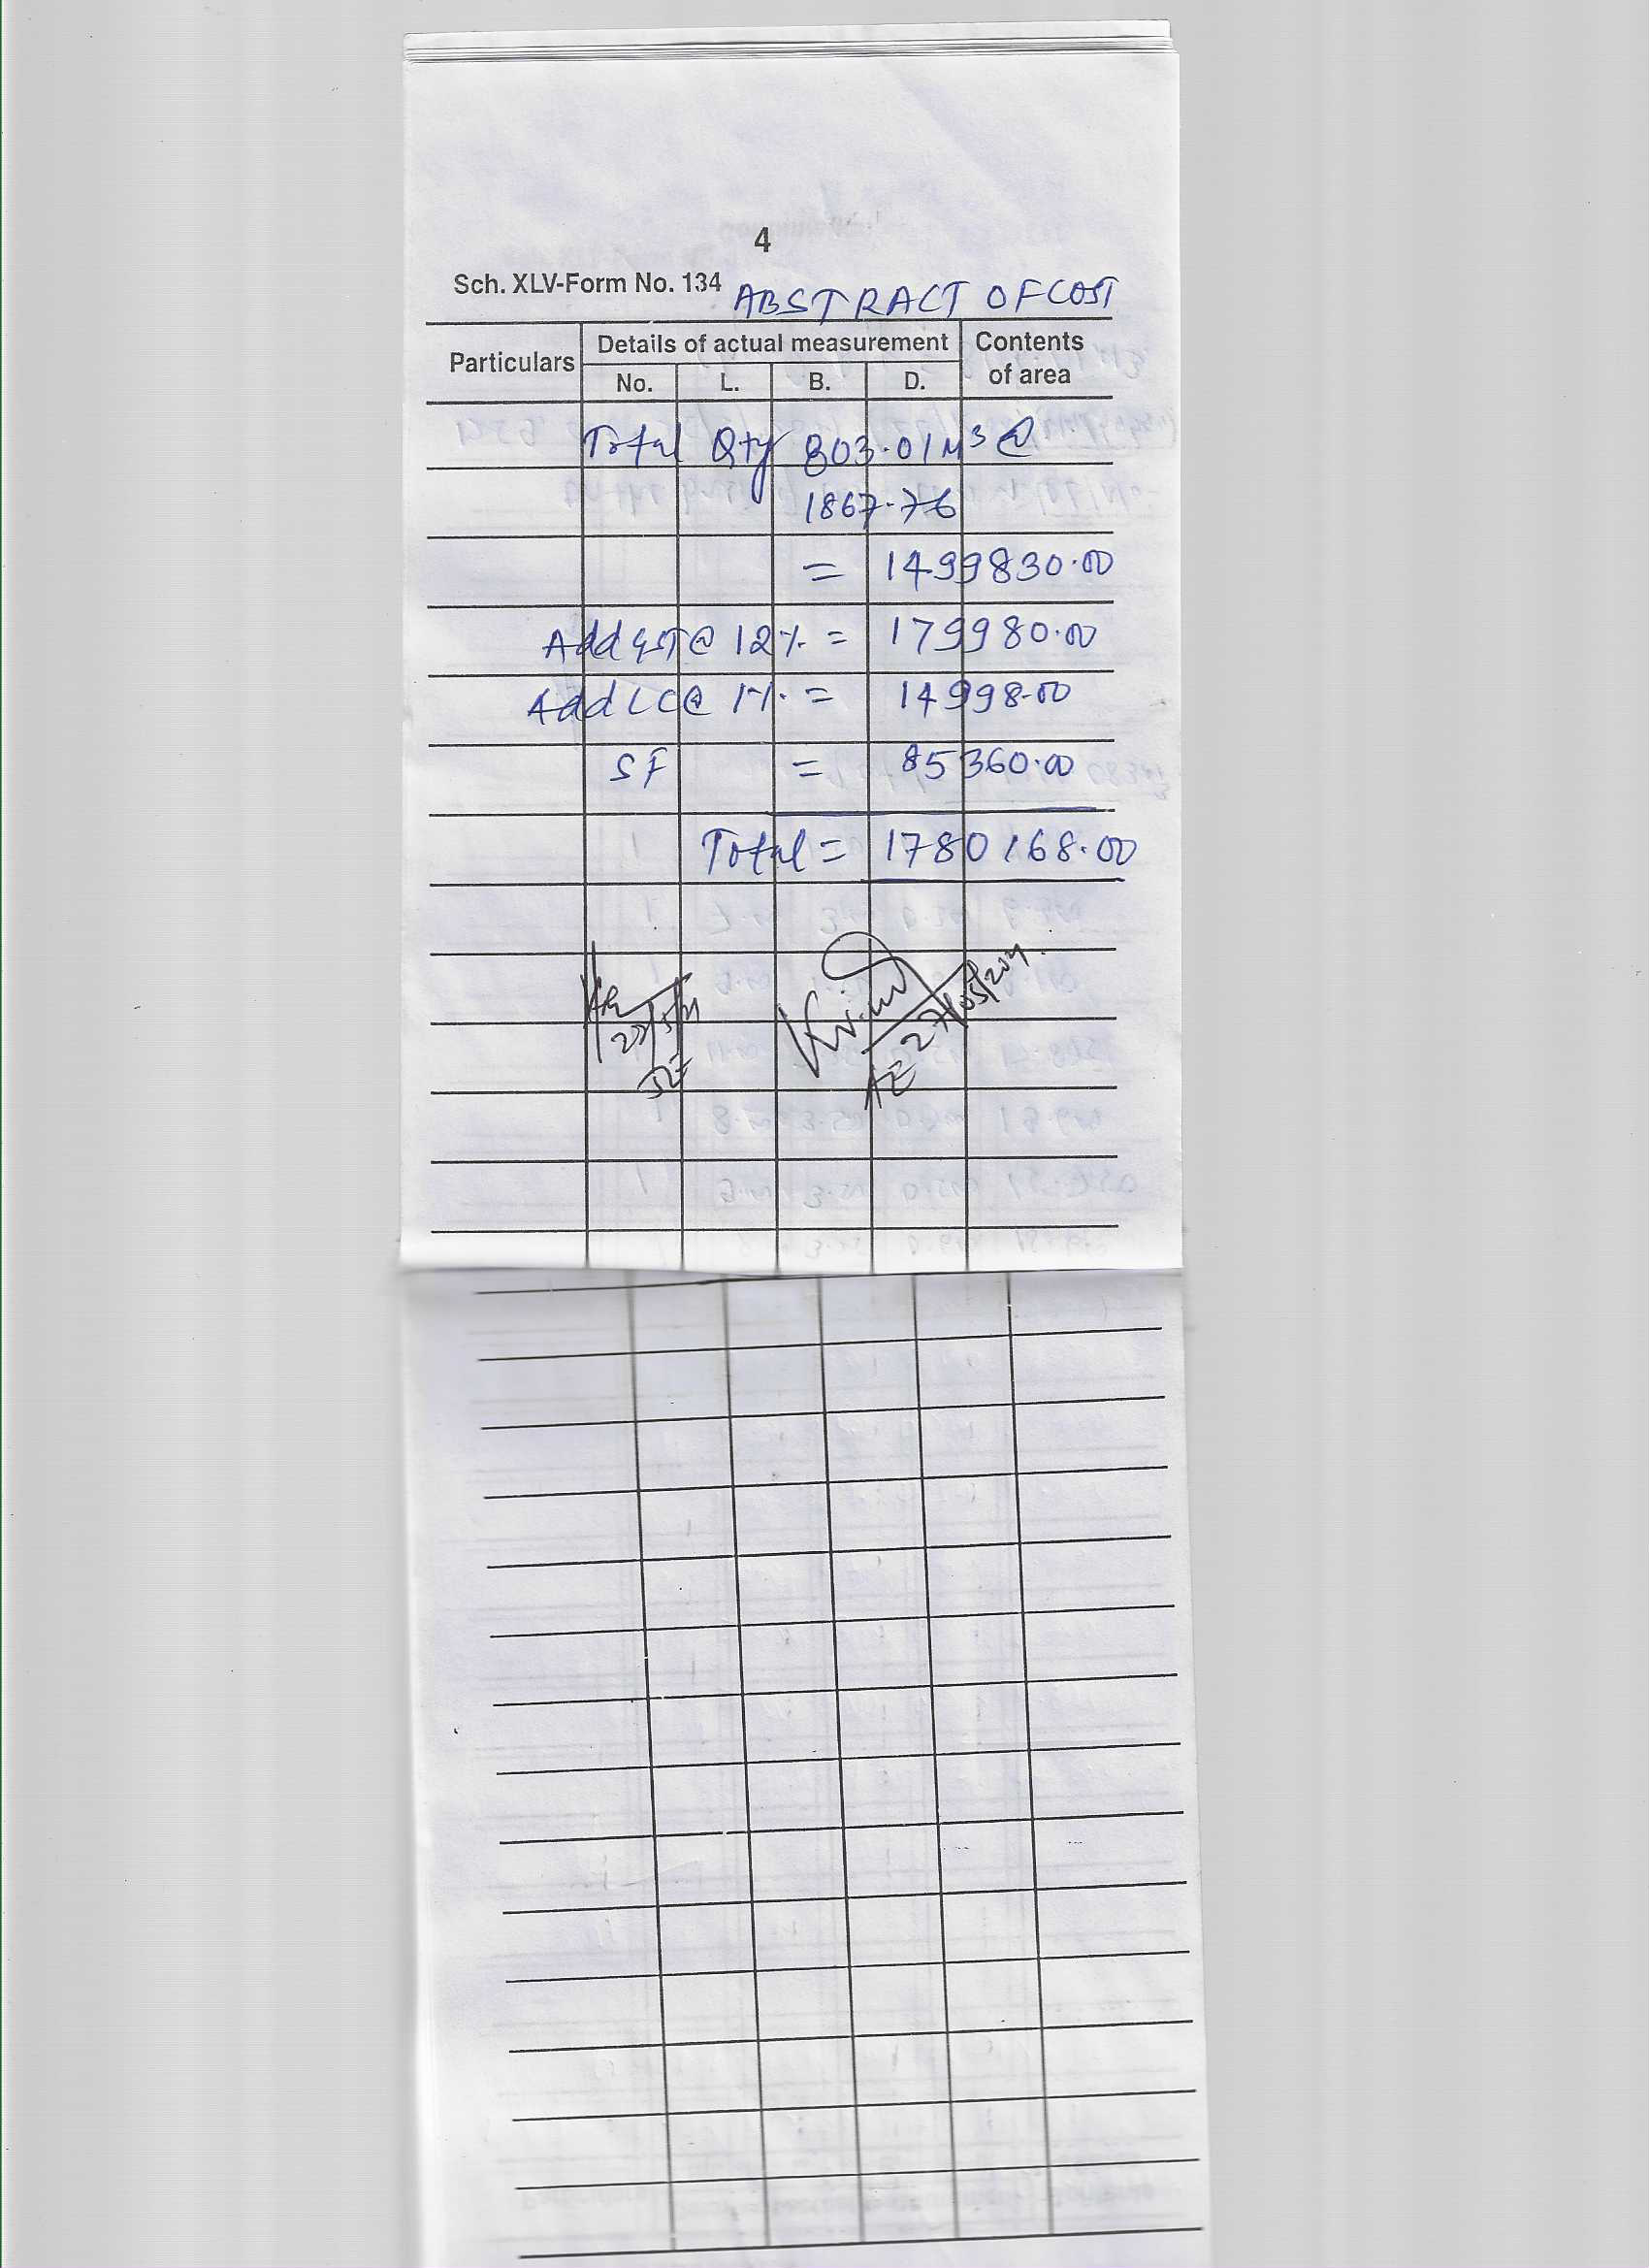 4
Sch. XLV-Form No. 134 ABSTRACT OF COST
Particulars Details of actual measurement Contents of area
No. L. B. D.
Total Qty 803.01 M³ @
1867.76
= 1499830.00
Add GST @ 12%. = 179980.00
Add LC @ 1%. = 14998.00
SF = 85360.00
Total = 1780168.00
JE
AE 27/05/2021